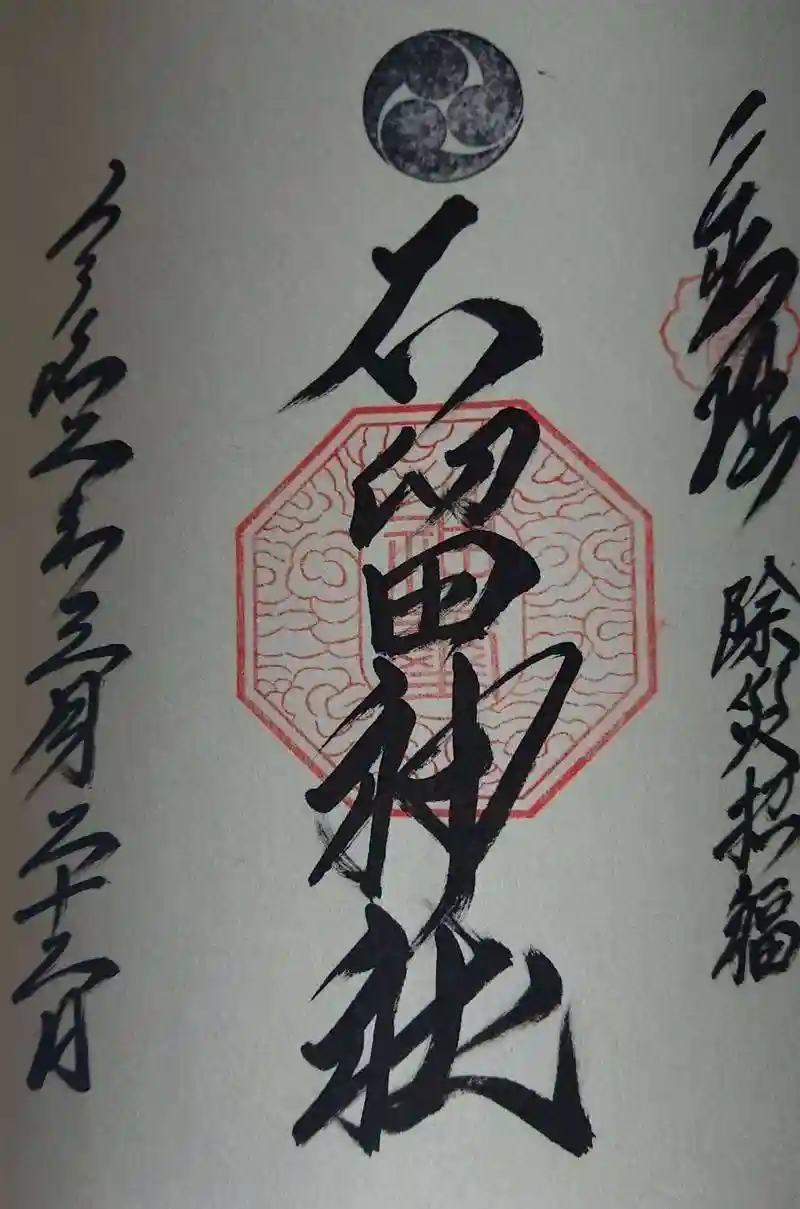 除災招福
石留神社
令和二年三月二十二日